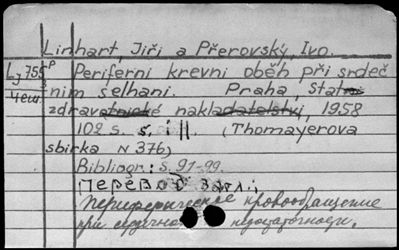 Linhart, Jiři a Přerovský, Ivo.
Lj755 p Periferni krevni oběh při srdeč
чеш. nim selhani. Praha, Statní
zdravotnické nakladatelstvi, 1958
102 s. s. ill. (Thomayerova
sbirka N 376)
Bibliogr.: s. 91-99.
Перевод загл.:
периферическое кровообращение
при сердечной недостаточности.